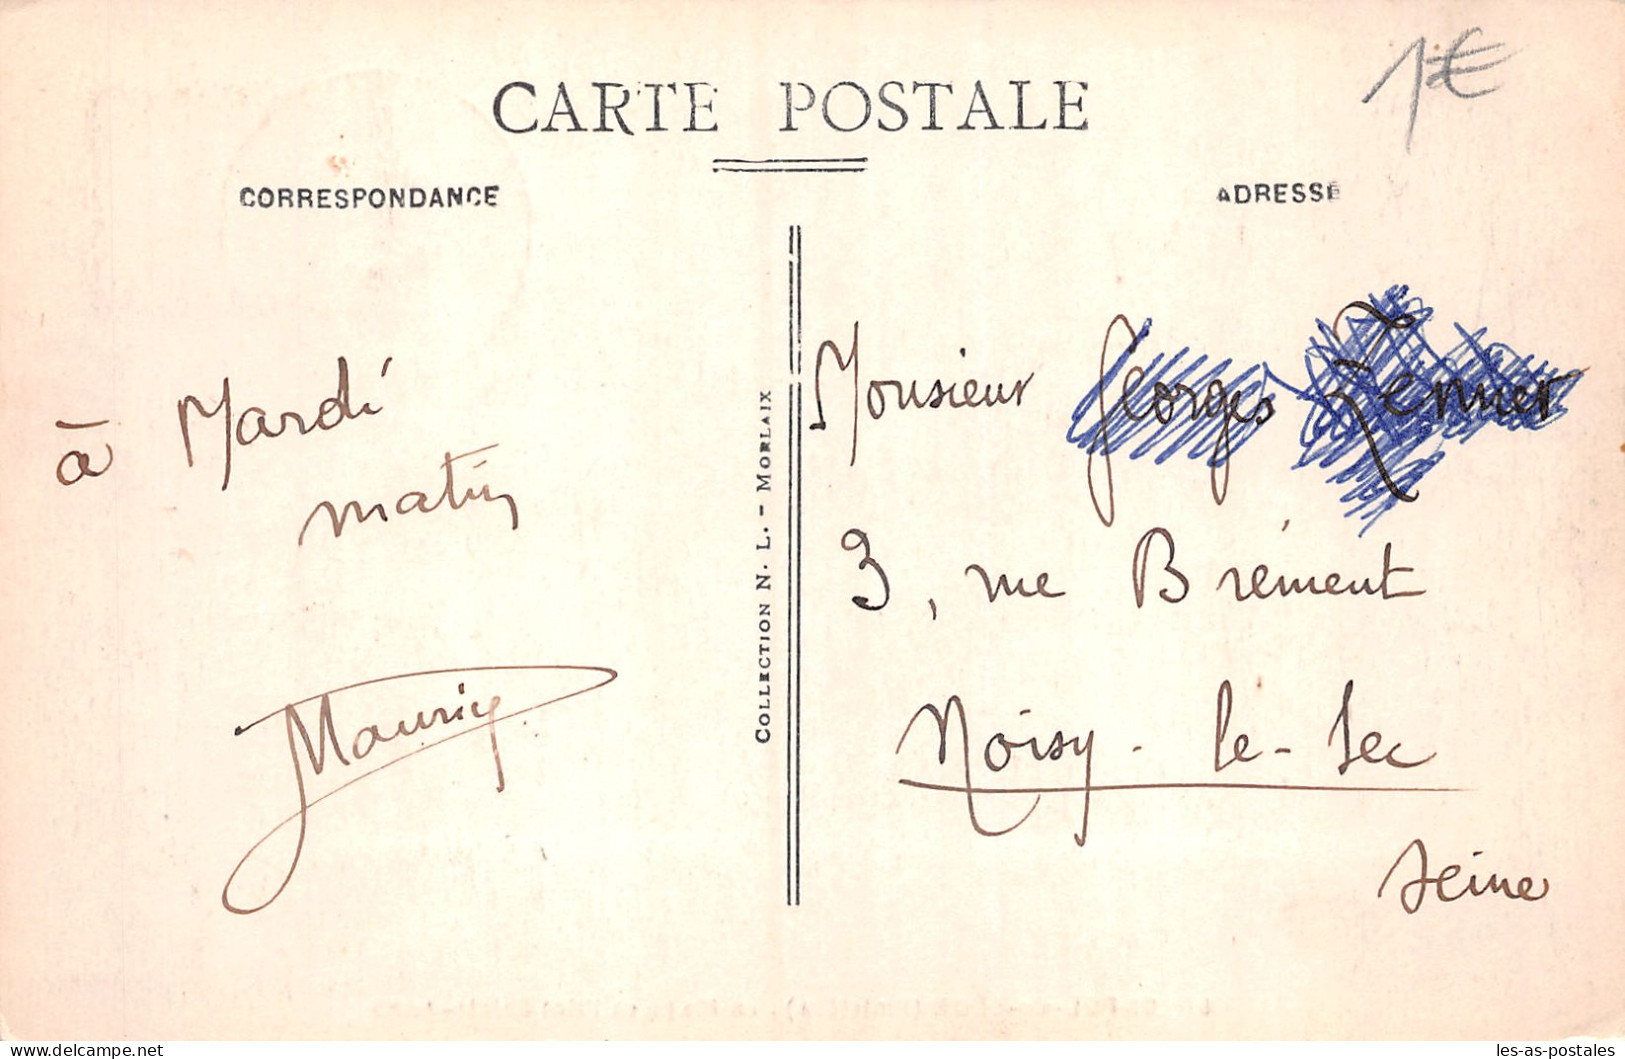 1€
CARTE POSTALE
CORRESPONDANCE
ADRESSE
à Mardi
matin
Maurice
COLLECTION N. L. - MORLAIX
Monsieur Georges
3, rue Brément
Noisy-le-Sec
Seine
les-as-postales